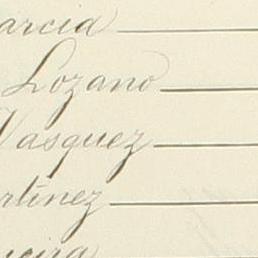 arcia
Lozano
Vasquez
rtinez